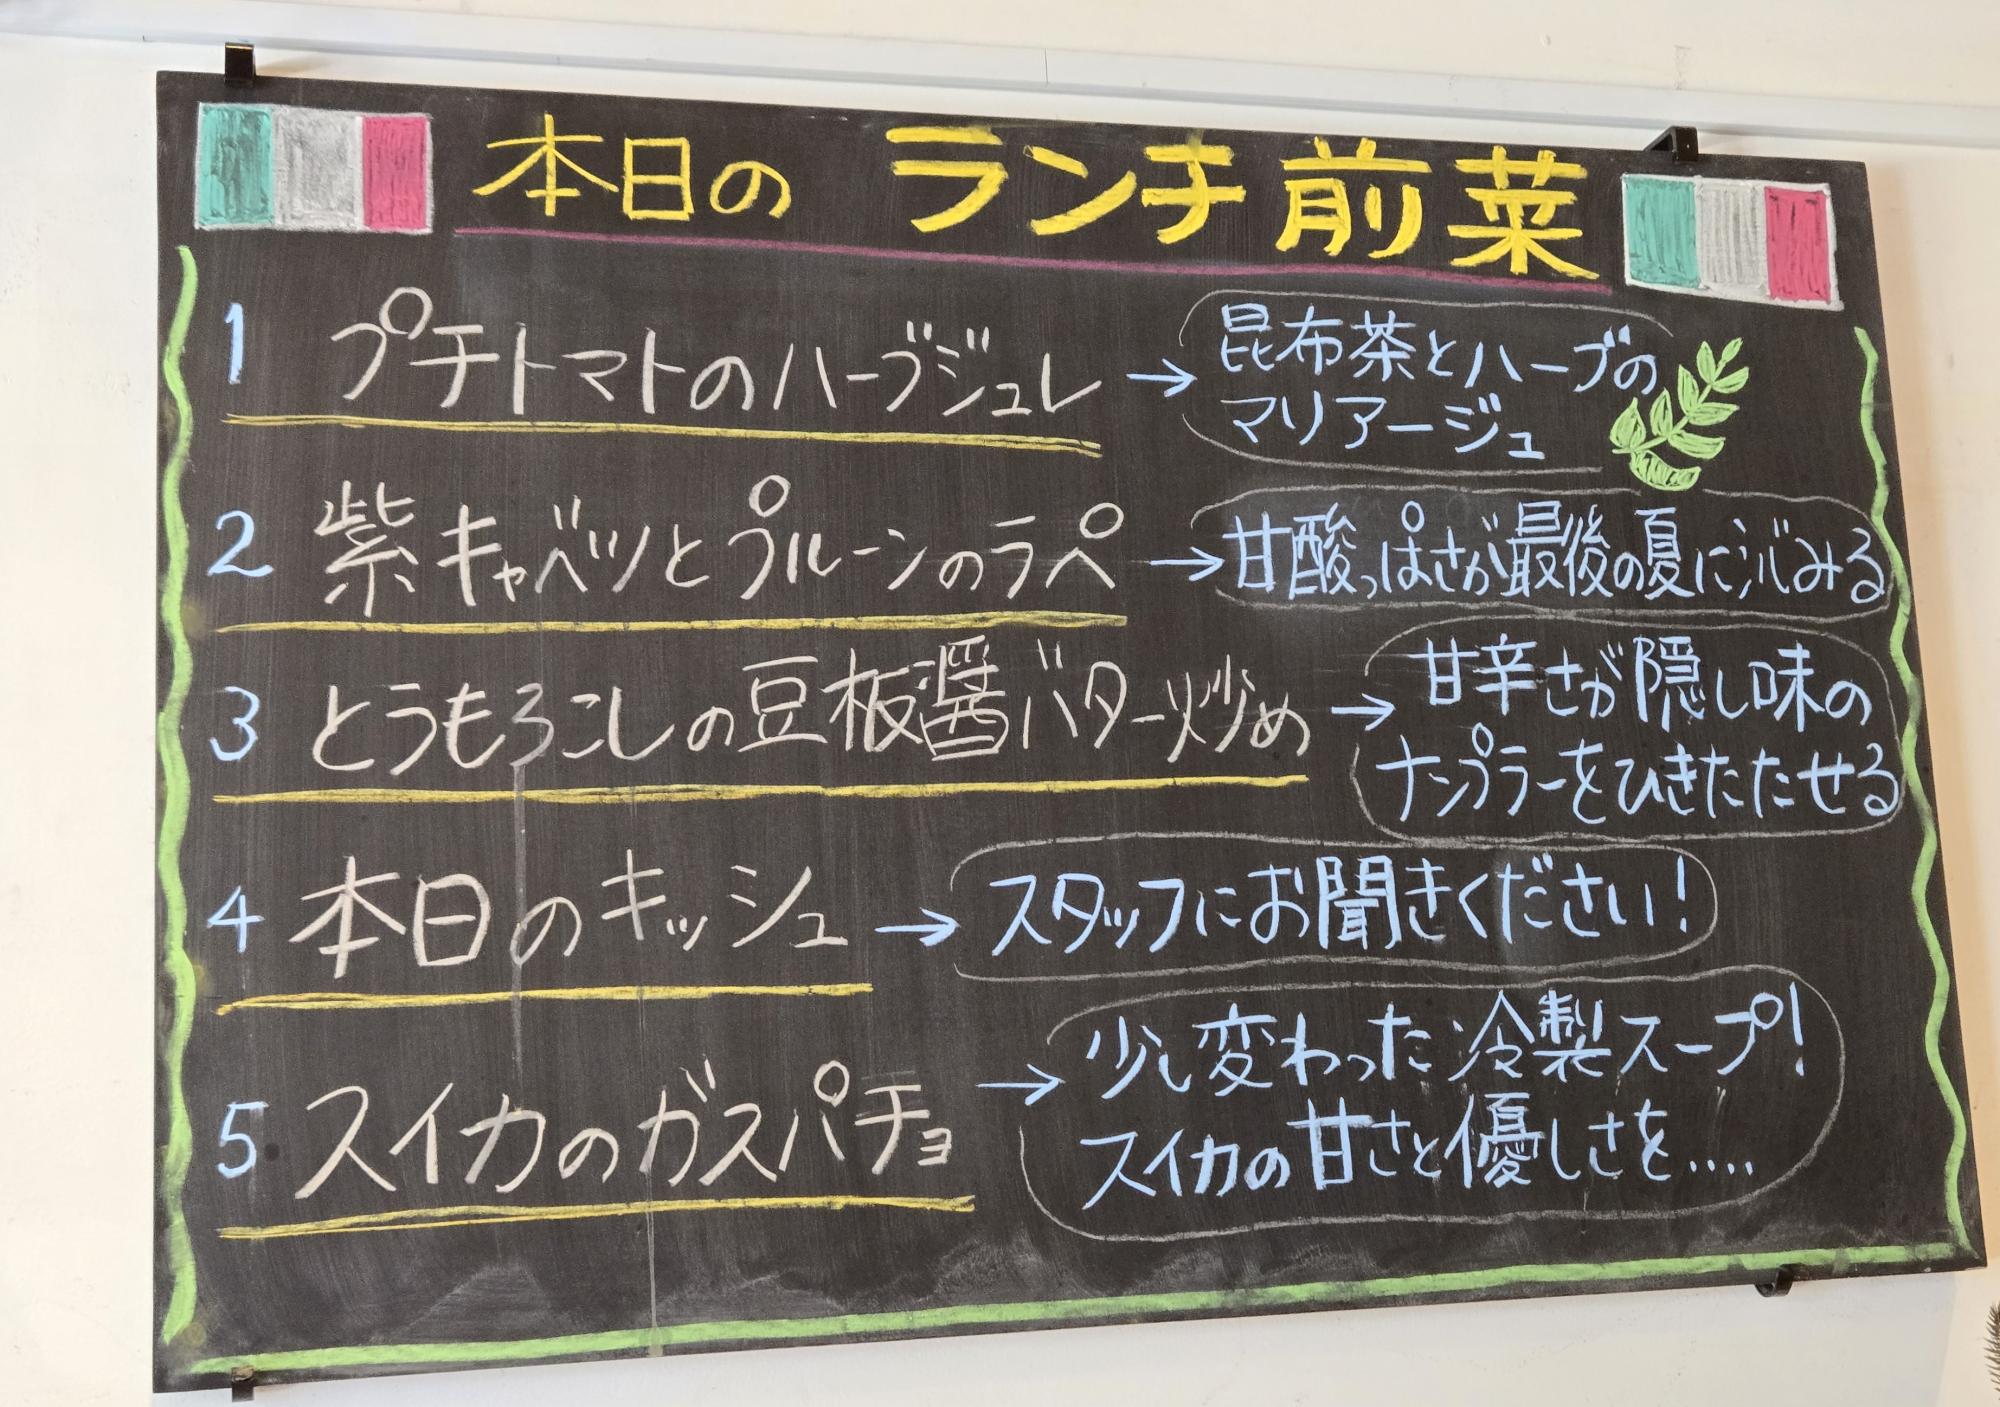 本日の ランチ前菜
1 プチトマトのハーブジュレ → 昆布茶とハーブの
マリアージュ
2 紫キャベツとプルーンのラペ → 甘酸っぱさが最後の夏に沁みる
3 とうもろこしの豆板醤バター炒め → 甘辛さが隠し味の
ナンプラーをひきたたせる
4 本日のキッシュ → スタッフにお聞きください!
5 スイカのガスパチョ → 少し変わった冷製スープ!
スイカの甘さと優しさを....